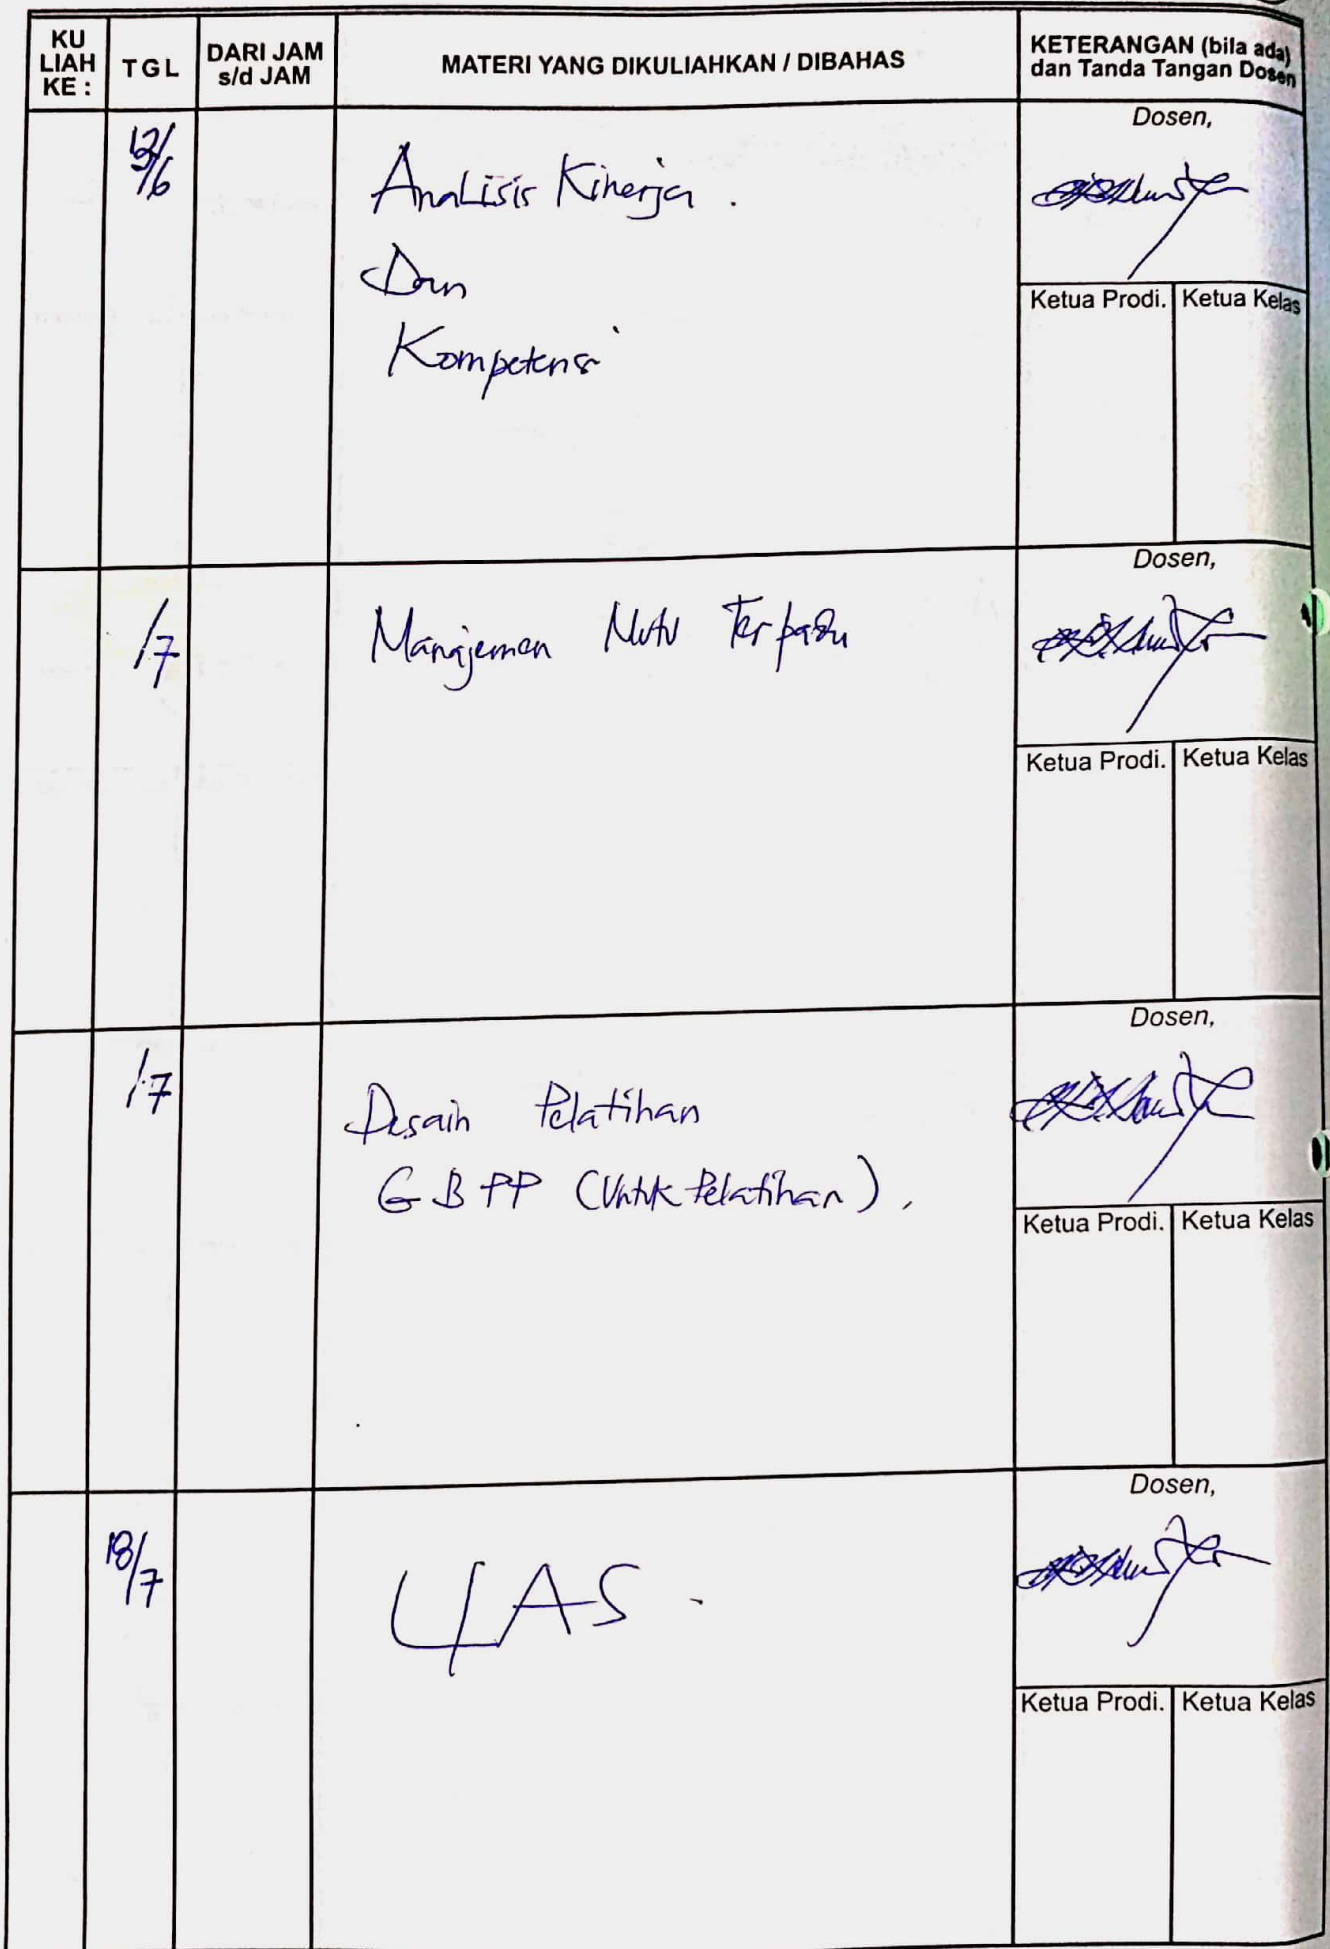 KU LIAH KE :
TGL
DARI JAM s/d JAM
MATERI YANG DIKULIAHKAN / DIBAHAS
KETERANGAN (bila ada) dan Tanda Tangan Dosen
Dosen,
Analisis Kinerja .
Dan
Kompetensi
Ketua Prodi. Ketua Kelas
Dosen,
/7 Manajemen Mutu Terpadu
Ketua Prodi. Ketua Kelas
Dosen,
/7 Desain Pelatihan
GBPP (Untuk Pelatihan) .
Ketua Prodi. Ketua Kelas
Dosen,
18/7 UAS .
Ketua Prodi. Ketua Kelas